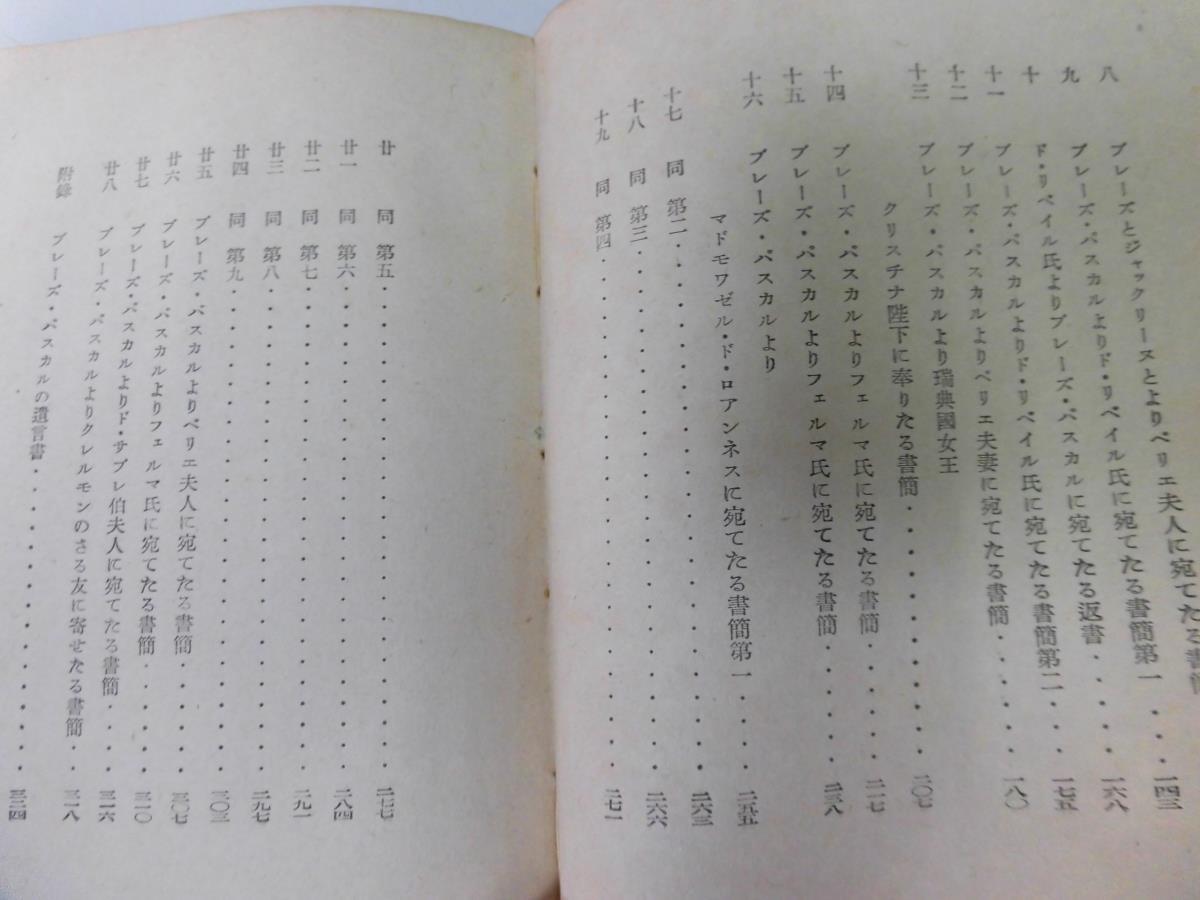 八 ブレーズとジャックリーヌとよりペリエ夫人に宛てたる書簡
九 ブレーズ・パスカルよりド・リベイル氏に宛てたる書簡第一・・・一四三
十 ド・リベイル氏よりブレーズ・パスカルに宛てたる返書・・・・一六八
十一 ブレーズ・パスカルよりド・リベイル氏に宛てたる書簡第二・・・一七五
十二 ブレーズ・パスカルよりペリエ夫妻に宛てたる書簡・・・・・一八〇
十三 ブレーズ・パスカルより瑞典國女王
クリスチナ陛下に奉りたる書簡・・・・・・・・二〇七
十四 ブレーズ・パスカルよりフェルマ氏に宛てたる書簡・・・・・二一七
十五 ブレーズ・パスカルよりフェルマ氏に宛てたる書簡・・・・・二三八
十六 ブレーズ・パスカルより
マドモワゼル・ド・ロアンネスに宛てたる書簡第一・・・・二五五
十七 同 第二・・・・・・・・・・・・・・・・・・・・二六三
十八 同 第三・・・・・・・・・・・・・・・・・・・・二六六
十九 同 第四・・・・・・・・・・・・・・・・・・・・二七一
廿 同 第五・・・・・・・・・・・・・・・・・・・・二七七
廿一 同 第六・・・・・・・・・・・・・・・・・・・・二八四
廿二 同 第七・・・・・・・・・・・・・・・・・・・・二九一
廿三 同 第八・・・・・・・・・・・・・・・・・・・・二九七
廿四 同 第九・・・・・・・・・・・・・・・・・・・・三〇三
廿五 ブレーズ・パスカルよりペリエ夫人に宛てたる書簡・・・・・三〇七
廿六 ブレーズ・パスカルよりフェルマ氏に宛てたる書簡・・・・・三一〇
廿七 ブレーズ・パスカルよりド・サブレ伯夫人に宛てたる書簡・・・・三一六
廿八 ブレーズ・パスカルよりクレルモンのさる友に寄せたる書簡・・三一八
附錄 ブレーズ・パスカルの遺言書・・・・・・・・・・・・・三二四